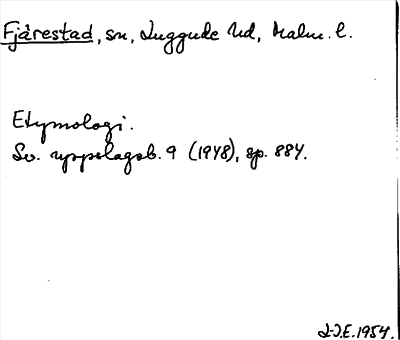 Fjärestad, sn, Luggude hd, Malm. l.
Etymologi.
Sv. uppslagsb. 9 (1948), sp. 884.
L-J.E. 1954.